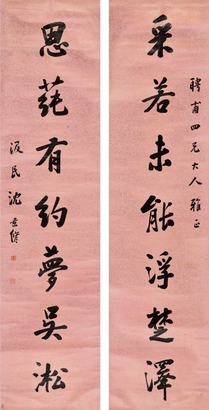 聘甫四兄大人雅正
采若未能浮楚澤
思莼有約夢吳淞
汲民沈景修